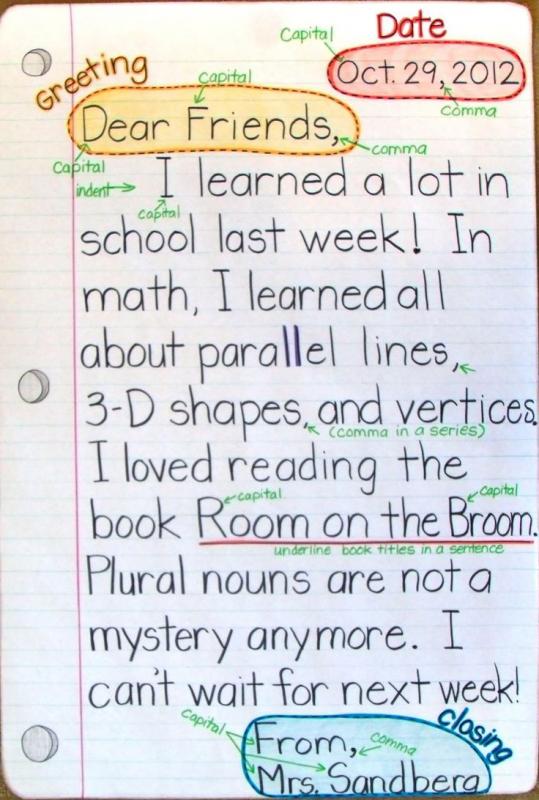 Date
Capital
Oct. 29, 2012
comma
Greeting
capital
Dear Friends,
comma
Capital
indent
I learned a lot in
capital
school last week! In
math, I learned all
about parallel lines,
3-D shapes, and vertices.
(comma in a series)
I loved reading the
capital
capital
book Room on the Broom.
underline book titles in a sentence
Plural nouns are not a
mystery anymore. I
can't wait for next week!
closing
Capital
From,
comma
Mrs. Sandberg